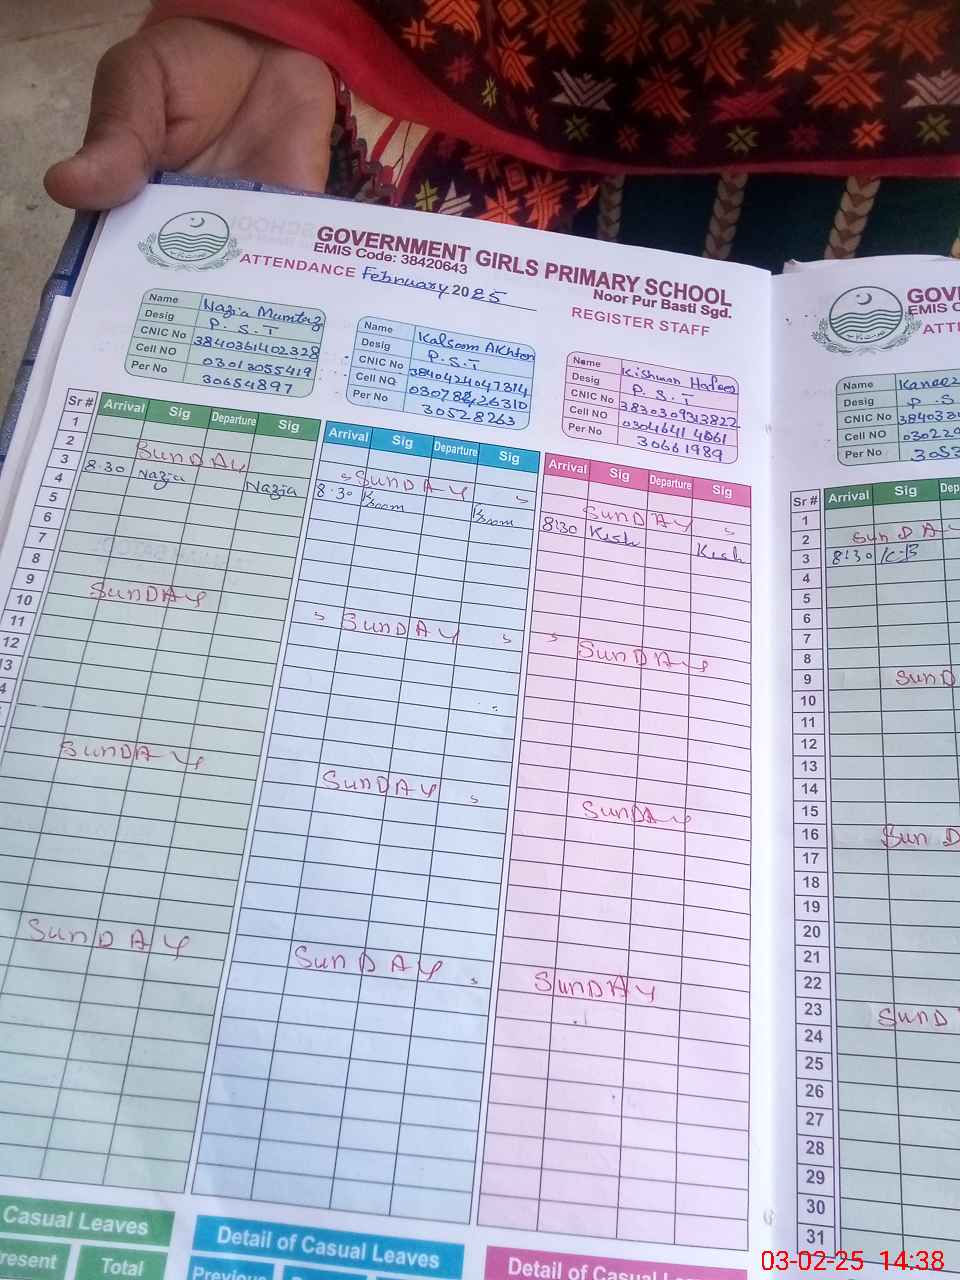 GOVERNMENT GIRLS PRIMARY SCHOOL
EMIS Code: 38420643
Noor Pur Basti Sgd.
ATTENDANCE February 2025
REGISTER STAFF
Name Nazia Mumtaz
Desig P.S.T
CNIC No 3840361402328
Cell NO 03013055419
Per No 30654897
Name Kalsoom Akhter
Desig P.S.T
CNIC No 3840424047314
Cell NO
Per No 30528263
Name Kishwar Hafeez
Desig P.S.T
CNIC No 3830309313822
Cell NO
Per No 30661989
Sr # Arrival Sig Departure Sig
Arrival Sig Departure Sig
Arrival Sig Departure Sig
1
2 SUNDAY SUNDAY SUNDAY
3 8.30 Nazia Nazia 8.30 8:30 Kish Kish
4
5
6
7
8
9 SUNDAY SUNDAY SUNDAY
10
11
12
13
SUNDAY SUNDAY SUNDAY
SUNDAY SUNDAY SUNDAY
Casual Leaves
Present Total
Detail of Casual Leaves
Previous
Detail of Casual
GOV
EMIS C
ATT
Name Kaneez
Desig P.S
CNIC No
Cell NO
Per No
Sr # Arrival Sig Dep
1
2 SUNDA
3 8:30 K.B
4
5
6
7
8
9 SUND
10
11
12
13
14
15
16 Sun D
17
18
19
20
21
22
23 SUND
24
25
26
27
28
29
30
31
03-02-25 14:38